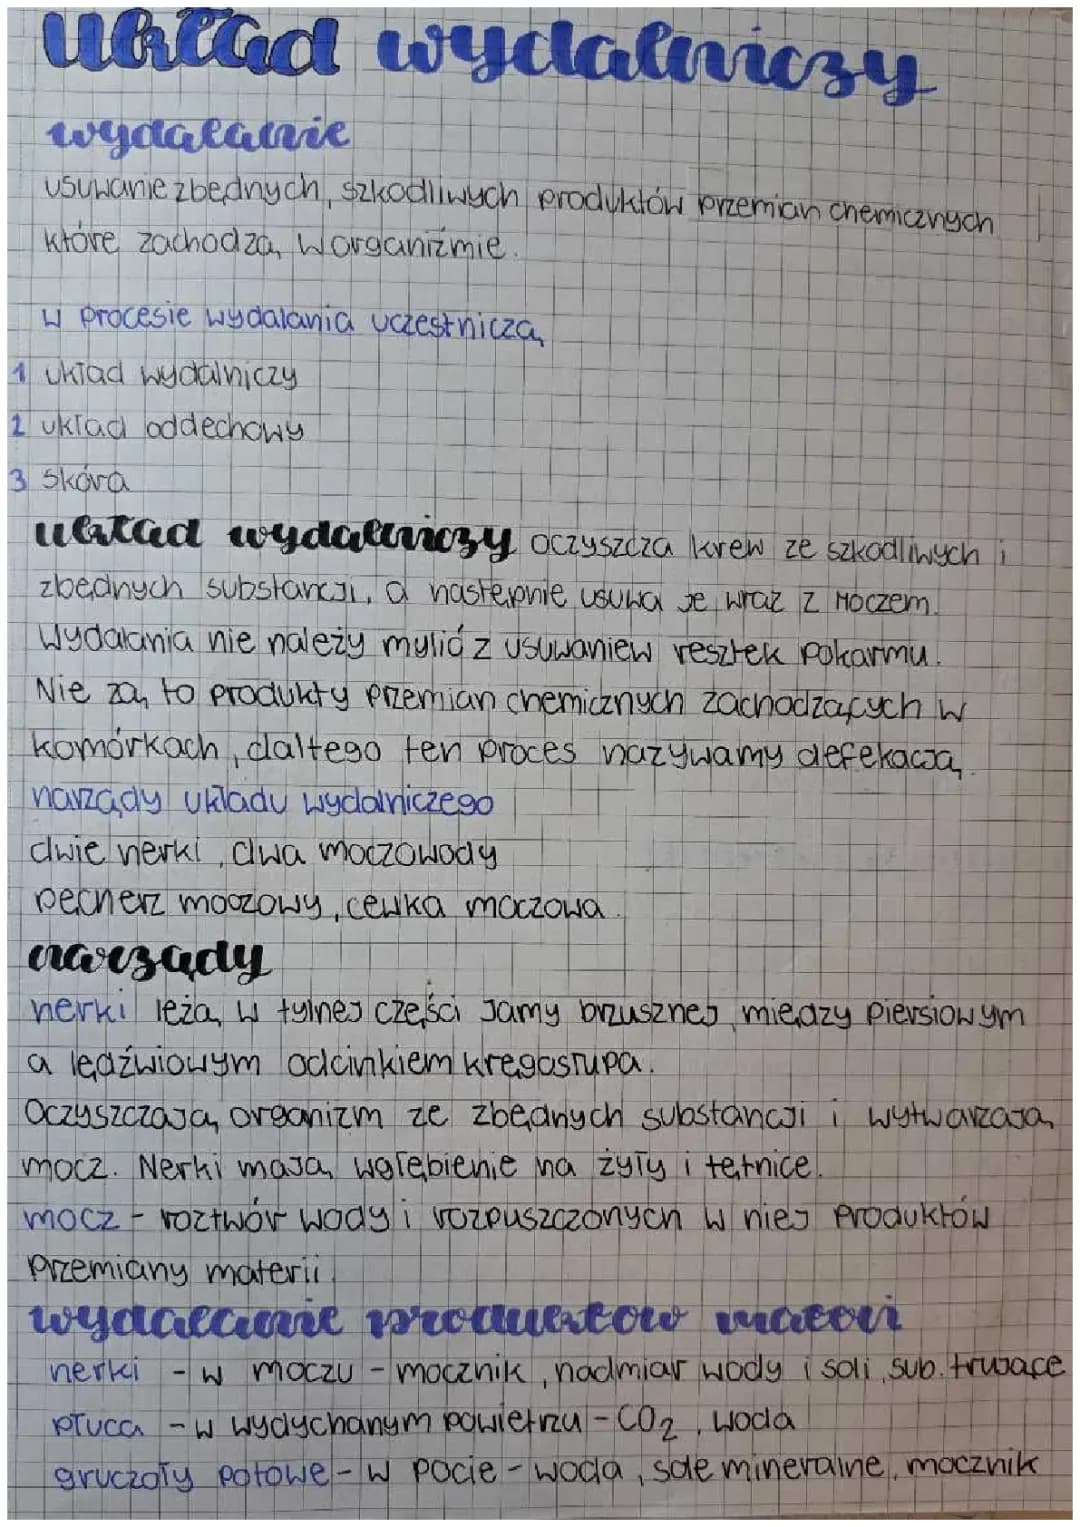 układ wydalniczy
wydalanie
usuwanie zbędnych, szkodliwych produktów przemian chemicznych
które zachodzą w organiźmie.
w procesie wydalania uczestniczą
1 układ wydalniczy
2 układ oddechowy
3 skóra
układ wydalniczy oczyszcza krew ze szkodliwych i
zbędnych substancji, a następnie usuwa je wraz z moczem.
Wydalania nie należy mylić z usuwaniew resztek pokarmu.
Nie są to produkty przemian chemicznych zachodzących w
komórkach, daltego ten proces nazywamy defekacją.
narządy układu wydalniczego
dwie nerki, dwa moczowody
pęcherz moczowy, cewka moczowa.
narządy
nerki leżą w tylnej części jamy brzusznej między piersiowym
a lędźwiowym odcinkiem kręgosłupa.
Oczyszczają organizm ze zbędnych substancji i wytwarzają
mocz. Nerki mają wgłębienie na żyły i tętnice.
mocz - roztwór wody i rozpuszczonych w niej produktów
przemiany materii
wydalanie produktów materi
nerki - w moczu - mocznik, nadmiar wody i soli, sub. trujące
płuca - w wydychanym powietrzu - CO2, woda
gruczoły potowe - w pocie - woda, sole mineralne, mocznik